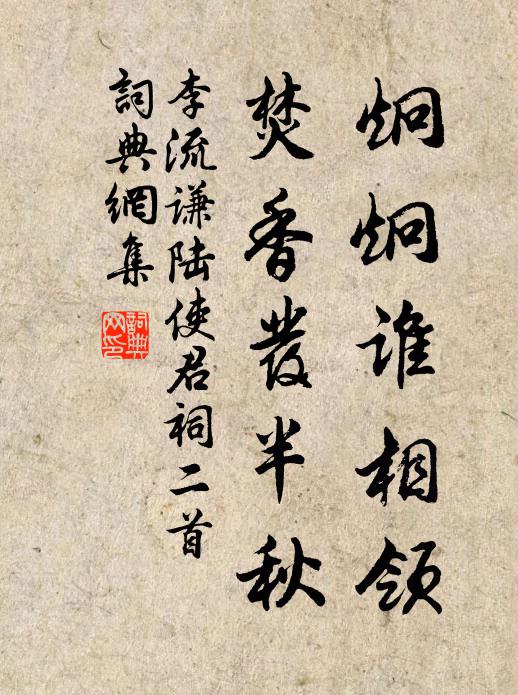 炯炯谁相领
焚香发半秋
李流谦陆使君祠二首
詞典網集
詞典
网印